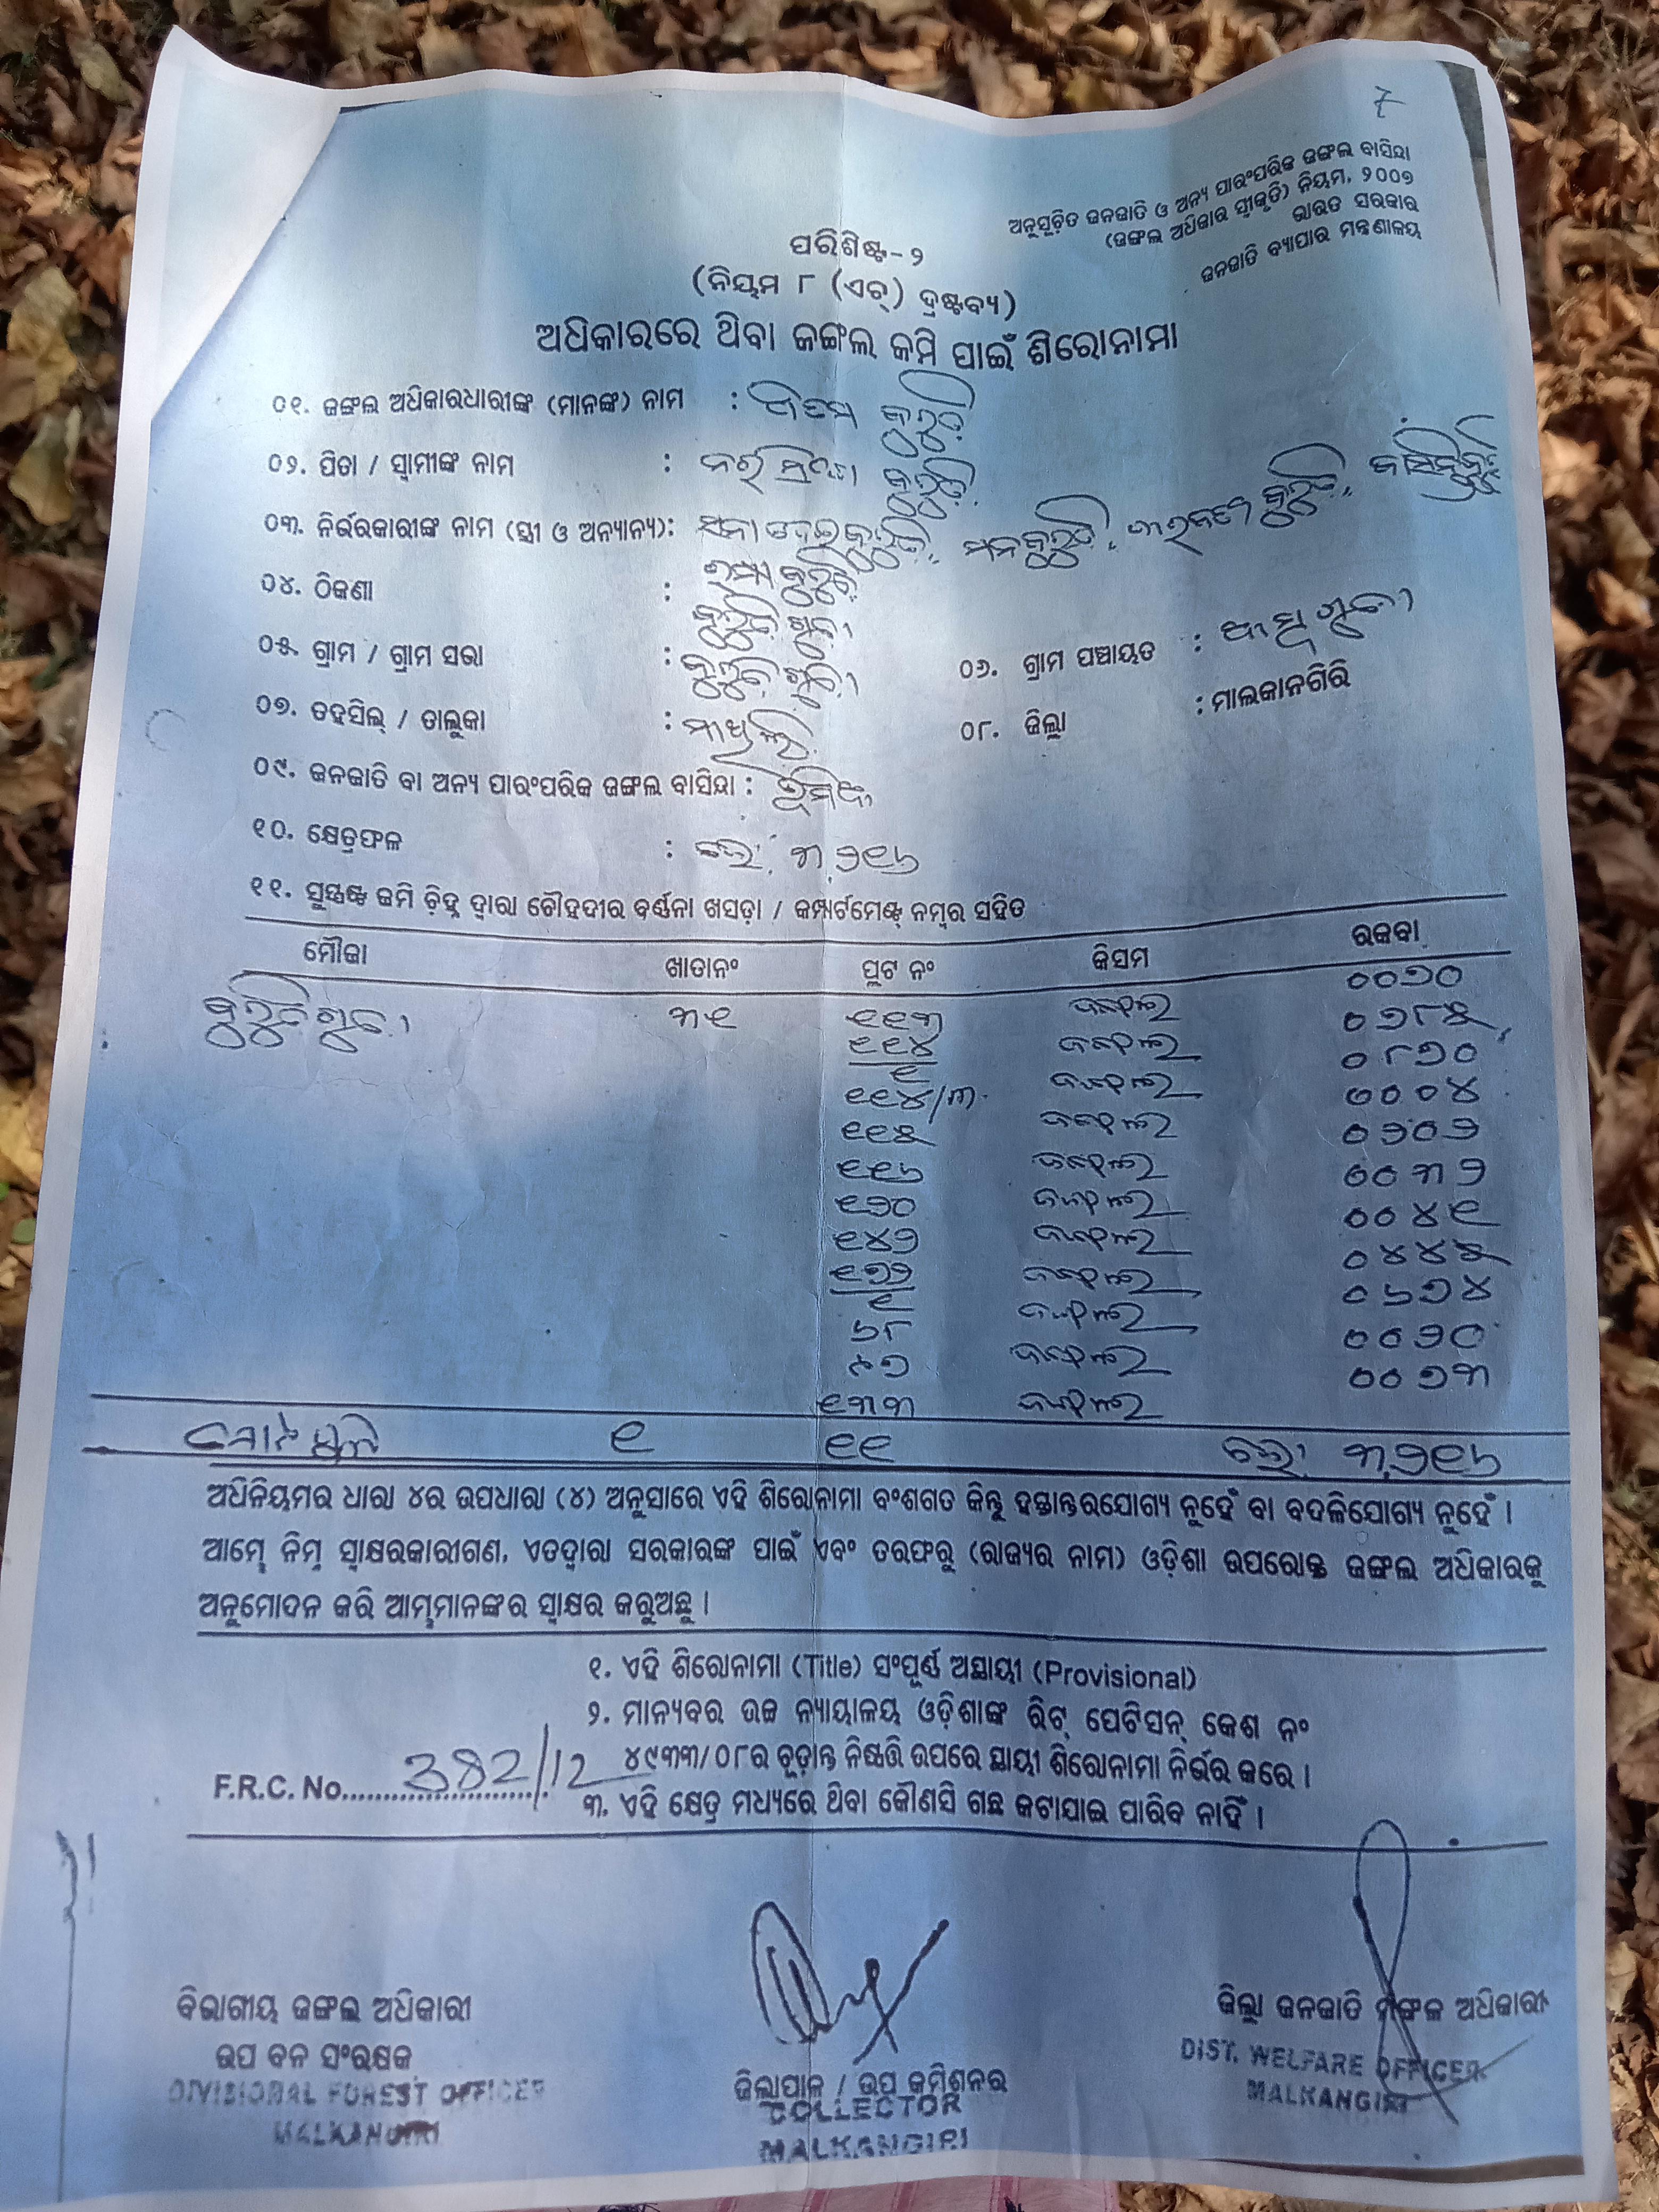 7
ଅନୁସୂଚିତ ଜନଜାତି ଓ ଅନ୍ୟ ପାରଂପରିକ ଜଙ୍ଗଲ ବାସିନ୍ଦା
(ଜଙ୍ଗଲ ଅଧିକାର ସ୍ୱୀକୃତି) ନିୟମ, ୨୦୦୭
ଭାରତ ସରକାର
ଜନଜାତି ବ୍ୟାପାର ମନ୍ତ୍ରଣାଳୟ
ପରିଶିଷ୍ଟ-୨
(ନିୟମ ୮ (ଏଚ୍) ଦ୍ରଷ୍ଟବ୍ୟ)
ଅଧିକାରରେ ଥିବା ଜଙ୍ଗଲ ଜମି ପାଇଁ ଶିରୋନାମା
୦୧. ଜଙ୍ଗଲ ଅଧିକାରଧାରୀଙ୍କ (ମାନଙ୍କ) ନାମ :
୦୨. ପିତା / ସ୍ୱାମୀଙ୍କ ନାମ :
୦୩. ନିର୍ଭରକାରୀଙ୍କ ନାମ (ସ୍ତ୍ରୀ ଓ ଅନ୍ୟାନ୍ୟ):
୦୪. ଠିକଣା :
୦୫. ଗ୍ରାମ / ଗ୍ରାମ ସଭା : ୦୬. ଗ୍ରାମ ପଞ୍ଚାୟତ :
୦୭. ତହସିଲ୍ / ତାଲୁକା : ମାଥିଲି ୦୮. ଜିଲ୍ଲା : ମାଲକାନଗିରି
୦୯. ଜନଜାତି ବା ଅନ୍ୟ ପାରଂପରିକ ଜଙ୍ଗଲ ବାସିନ୍ଦା : ଭୂମିଆ
୧୦. କ୍ଷେତ୍ରଫଳ : ୩.୨୧୬
୧୧. ସୁସ୍ପଷ୍ଟ ଜମି ଚିହ୍ନ ଦ୍ୱାରା ଚୌହଦୀର ବର୍ଣ୍ଣନା ଖସଡ଼ା / କମ୍ପାର୍ଟମେଣ୍ଟ ନମ୍ବର ସହିତ
ମୌଜା ଖାତାନଂ ପ୍ଲଟ ନଂ କିସମ ରକବା
୩୧ ୧୧୩ ଜଙ୍ଗଲ ୦୦୭୦
୧୧୪/୧ ଜଙ୍ଗଲ ୦୬୮୫
୧୧୪/୩ ଜଙ୍ଗଲ ୦୮୭୦
୧୧୫ ଜଙ୍ଗଲ ୦୦୦୪
୧୧୬ ଜଙ୍ଗଲ ୦୨୦୨
୧୭୦ ଜଙ୍ଗଲ ୦୦୩୨
୧୪୨ ଜଙ୍ଗଲ ୦୦୪୧
୧୭୨/୧ ଜଙ୍ଗଲ ୦୪୪୫
୬୮ ଜଙ୍ଗଲ ୦୬୭୪
ଜଙ୍ଗଲ ୦୦୨୦
୧୩୩ ଜଙ୍ଗଲ ୦୦୭୩
ମୋଟ ୧ ୧୧ ୩.୨୧୬
ଅଧିନିୟମର ଧାରା ୪ର ଉପଧାରା (୪) ଅନୁସାରେ ଏହି ଶିରୋନାମା ବଂଶଗତ କିନ୍ତୁ ହସ୍ତାନ୍ତରଯୋଗ୍ୟ ନୁହେଁ ବା ବଦଳିଯୋଗ୍ୟ ନୁହେଁ ।
ଆମ୍ଭେ ନିମ୍ନ ସ୍ୱାକ୍ଷରକାରୀଗଣ, ଏତଦ୍ୱାରା ସରକାରଙ୍କ ପାଇଁ ଏବଂ ତରଫରୁ (ରାଜ୍ୟର ନାମ) ଓଡ଼ିଶା ଉପରୋକ୍ତ ଜଙ୍ଗଲ ଅଧିକାରକୁ
ଅନୁମୋଦନ କରି ଆମ୍ଭମାନଙ୍କର ସ୍ୱାକ୍ଷର କରୁଅଛୁ ।
୧. ଏହି ଶିରୋନାମା (Title) ସଂପୂର୍ଣ୍ଣ ଅସ୍ଥାୟୀ (Provisional)
୨. ମାନ୍ୟବର ଉଚ୍ଚ ନ୍ୟାୟାଳୟ ଓଡ଼ିଶାଙ୍କ ରିଟ୍ ପେଟିସନ୍ କେଶ ନଂ
୪୯୩୩/୦୮ର ଚୂଡ଼ାନ୍ତ ନିଷ୍ପତ୍ତି ଉପରେ ସ୍ଥାୟୀ ଶିରୋନାମା ନିର୍ଭର କରେ ।
F.R.C. No. 382/12
୩. ଏହି କ୍ଷେତ୍ର ମଧ୍ୟରେ ଥିବା କୌଣସି ଗଛ କଟାଯାଇ ପାରିବ ନାହିଁ ।
ବିଭାଗୀୟ ଜଙ୍ଗଲ ଅଧିକାରୀ
ଉପ ବନ ସଂରକ୍ଷକ
DIVISIONAL FOREST OFFICER
MALKANGIRI
ଜିଲ୍ଲାପାଳ / ଉପ କମିଶନର
COLLECTOR
MALKANGIRI
ଜିଲ୍ଲା ଜନଜାତି ମଙ୍ଗଳ ଅଧିକାରୀ
DIST. WELFARE OFFICER
MALKANGIRI